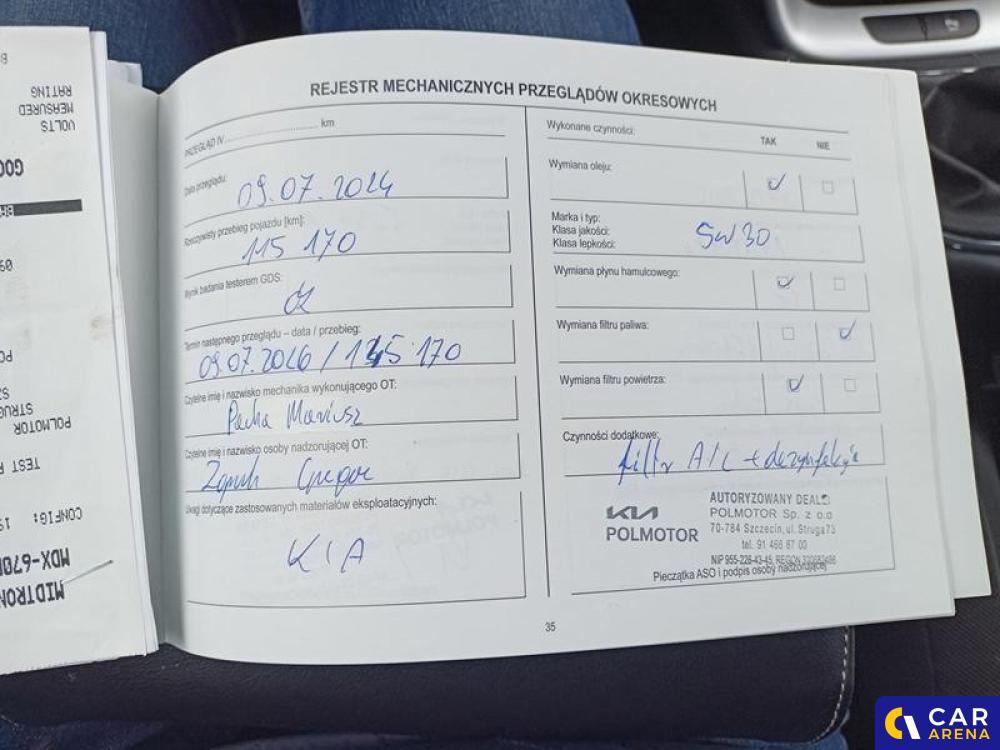 REJESTR MECHANICZNYCH PRZEGLĄDÓW OKRESOWYCH
PRZEGLĄD IV .............................. km
Data przeglądu:
09.07.2024
Rzeczywisty przebieg pojazdu [km]:
115 170
Wynik badania testerem GDS:
Termin następnego przeglądu – data / przebieg:
09.07.2026 / 145 170
Czytelne imię i nazwisko mechanika wykonującego OT:
Mariusz
Czytelne imię i nazwisko osoby nadzorującej OT:
Uwagi dotyczące zastosowanych materiałów eksploatacyjnych:
KIA
Wykonane czynności:
TAK NIE
Wymiana oleju:
Marka i typ:
Klasa jakości:
Klasa lepkości:
5W30
Wymiana płynu hamulcowego:
Wymiana filtru paliwa:
Wymiana filtru powietrza:
Czynności dodatkowe:
filtr A/C + dezynfekcja
KIA
POLMOTOR
AUTORYZOWANY DEALER
POLMOTOR Sp. z o.o
70-784 Szczecin, ul. Struga 73
tel. 91 466 87 00
NIP 955-228-43-45, REGON
Pieczątka ASO i podpis osoby nadzorującej
35
MIDTRON
MDX-670
CONFIG: 19
TEST
POLMOTOR
STRUG
VOLTS
MEASURED
RATING
CAR
ARENA